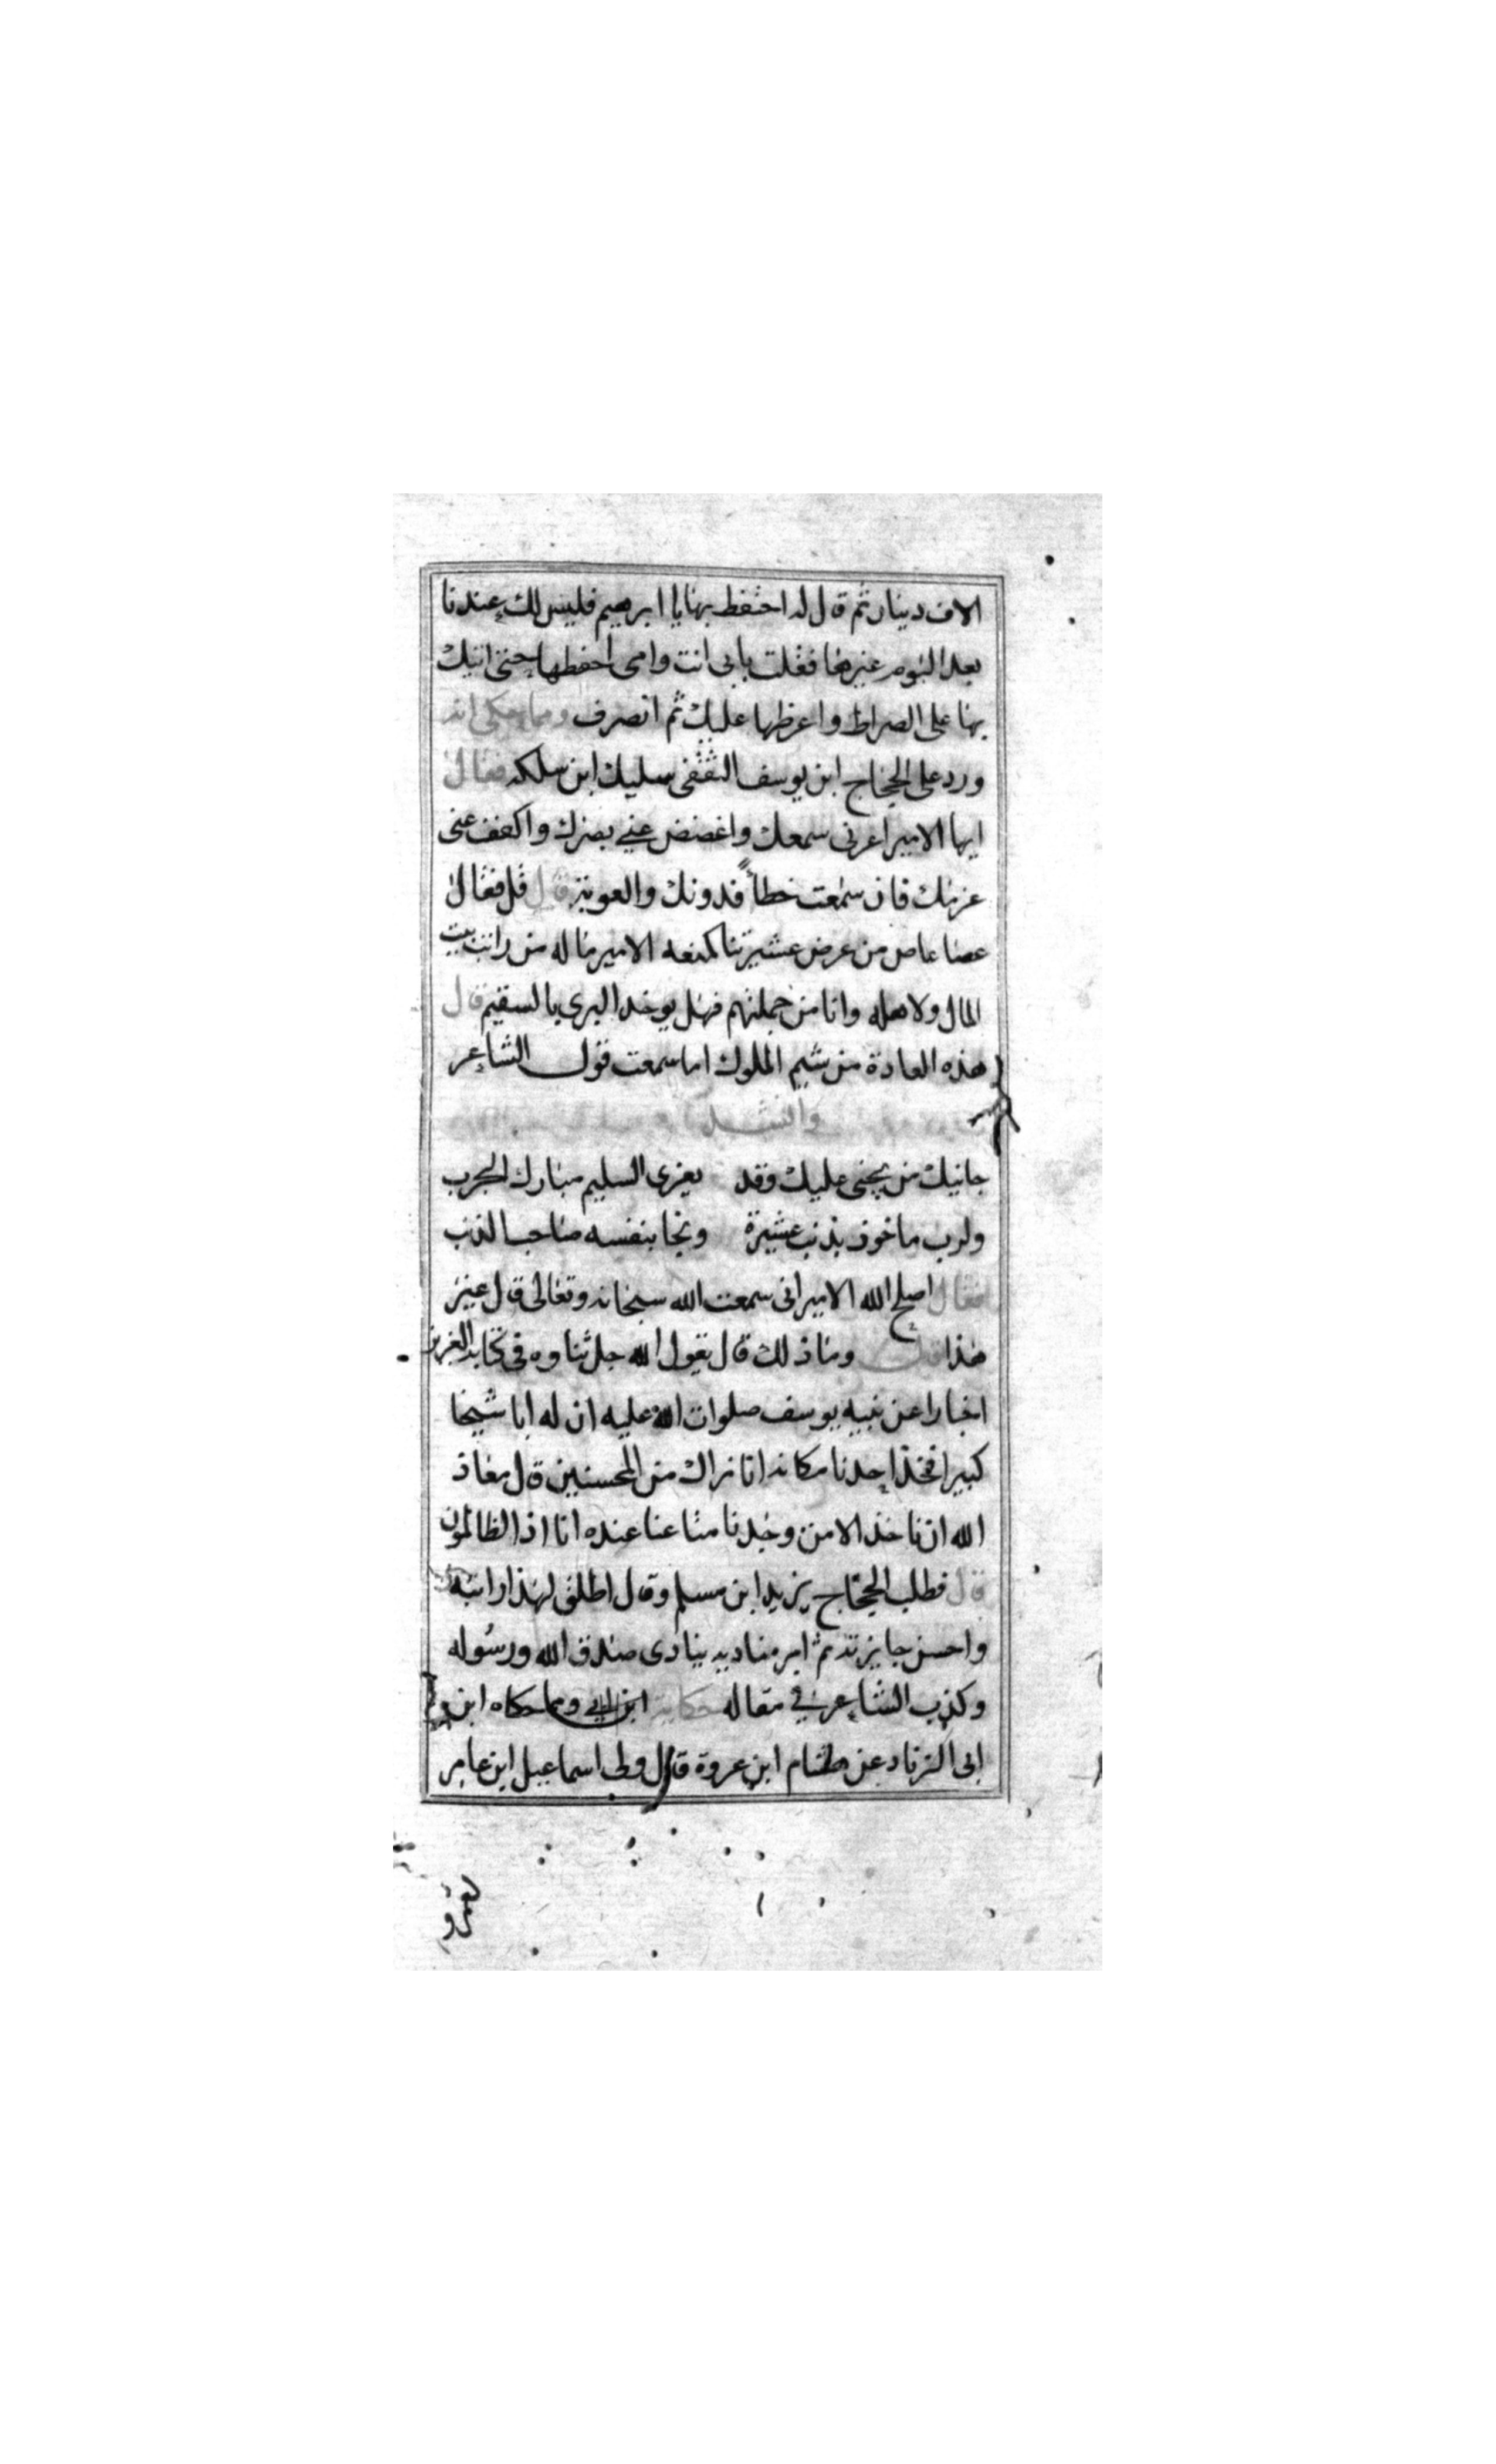 الاف دينار ثم قال له احتفظ بهنا يا ابرهيم فليس لك عندنا
بعد اليوم غيرها فقلت بابى انت وامى احفظها حتى اتيك
بها على الصراط واعرظها عليك ثم انصرف ومما يحكى انه
ورد على الحجاج ابن يوسف الثقفى سليك ابن سلكه فقال
ايها الامير اعرنى سمعك واغضض عنى بصرك واكفف عنى
عزبك فان سمعت خطأً فدونك والعوبة قال قل فقال
عصا عاص من عرض عشيرتنا فمنعه الامير ماله من راتب بيت
المال ولاهله وانا من جملتهم فهل يوخد البرى بالسقيم قال
هذه العادة من شيم الملوك اما سمعت قول الشاعر
وانشد
جانيك من يجنى عليك وقد يعزى السليم مبارك الجرب
ولرب ماخوذ بذنب عشيرة ونجا بنفسه صاحب الذنب
فقال اصلح الله الامير انى سمعت الله سبحانه وتعالى قال غير
هذا قال وما ذلك قال يقول الله جل ثناوه فى كتابه العزيز
اخبارا عن نبيه يوسف صلوات الله عليه ان له ابا شيخا
كبيرا فخذ احدنا مكانه انا نراك من المحسنين قال معاذ
الله ان ناخذ الا من وجدنا متاعنا عنده انا اذا لظالمون
قال فطلب الحجاج يزيد ابن مسلم وقال اطلق لهذا راتبه
واحسن جايزته ثم امر مناديه ينادى صدق الله ورسوله
وكذب الشاعر في مقاله حكاية ومما حكاه ابن
ابى الزناد عن هشام ابن عروة قال ولى اسماعيل ابن عامر